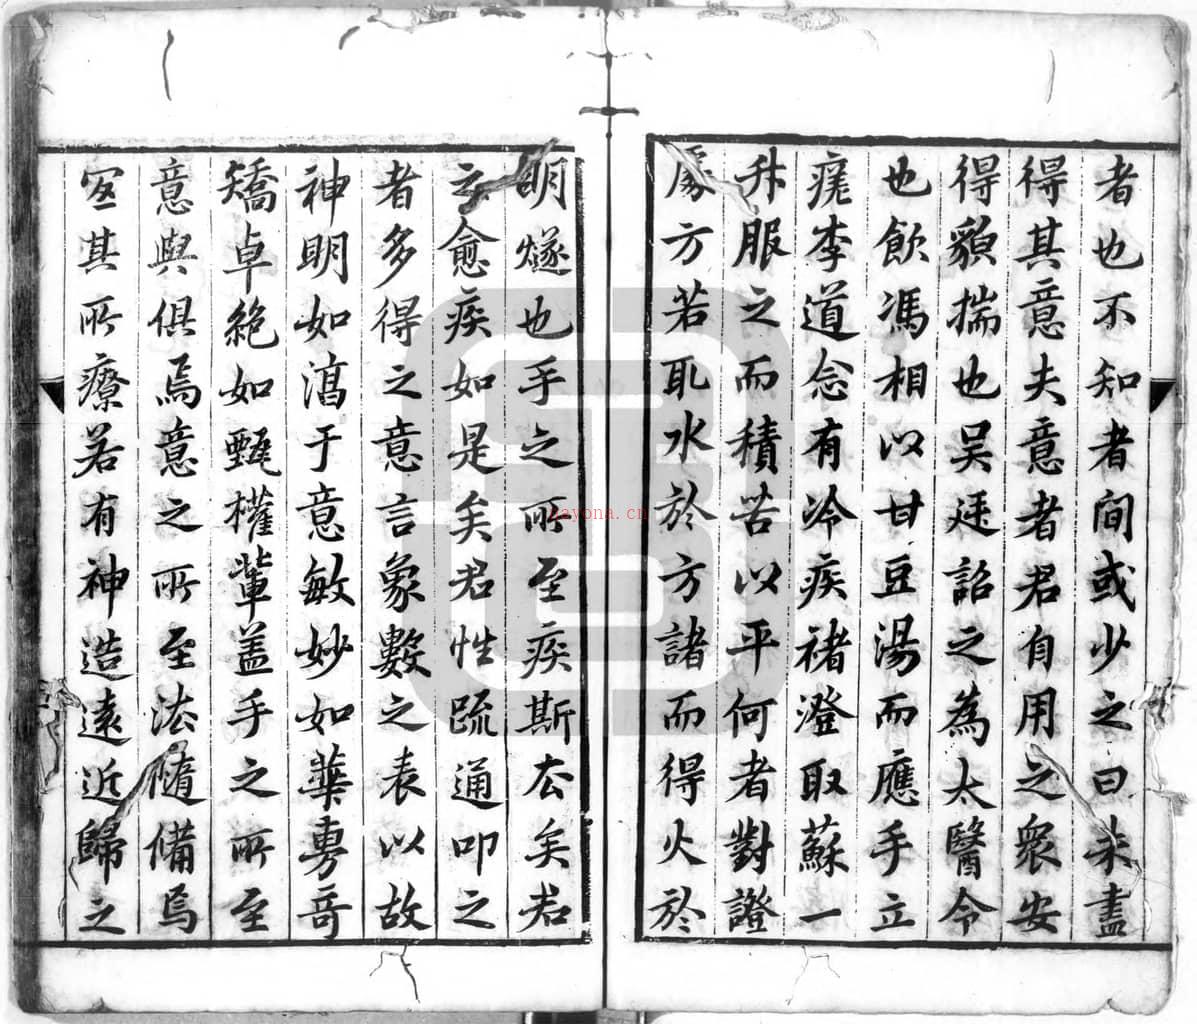 者也不知者間或少之曰未盡
得其意夫意者君自用之衆安
得貌揣也吴廷詔之為太醫令
也飲馮相以甘豆湯而應手立
瘥李道念有冷疾褚澄取蘇一
升服之而積苦以平何者對證
處方若取水於方諸而得火於
明燧也手之所至疾斯去矣君
之愈疾如是矣君性疏通叩之
者多得之意言象數之表以故
神明如淓于意敏妙如華旉奇
矯卓絶如甄權輩盖手之所至
意與俱焉意之所至法随備焉
宜其所療若有神造遠近歸之
dayona.cn